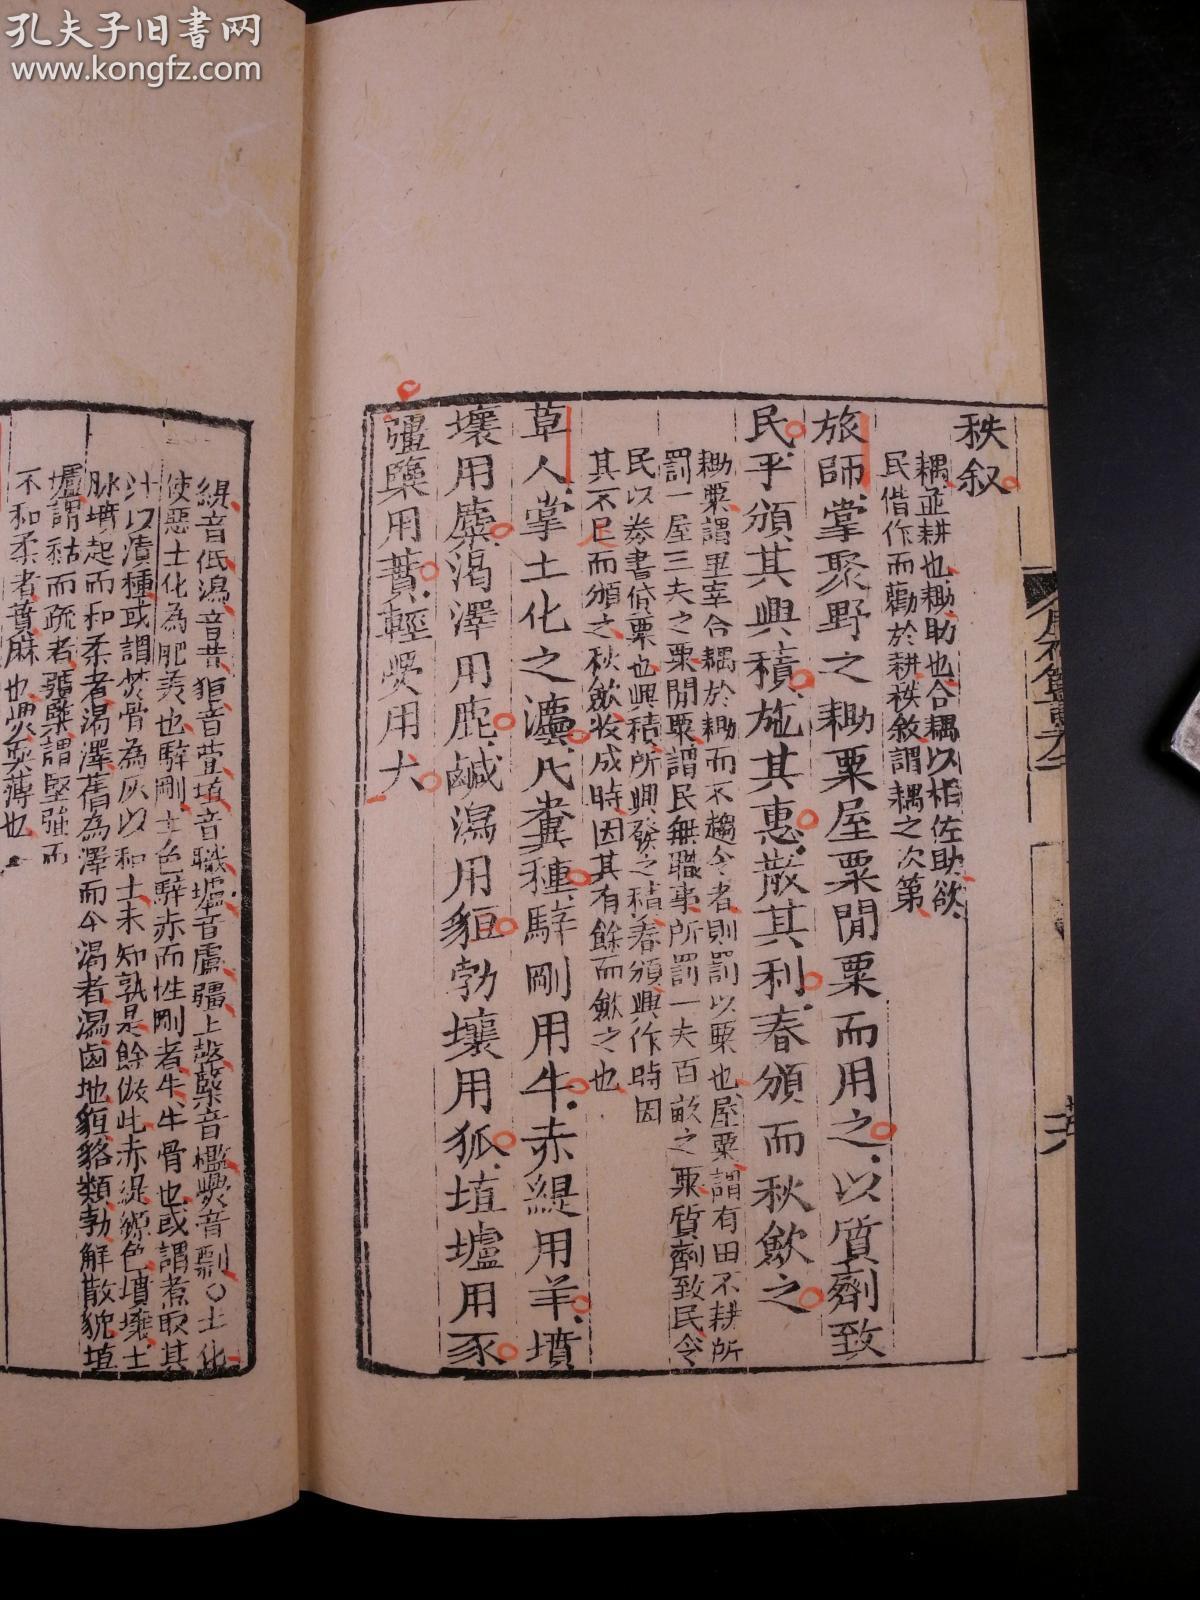 孔夫子旧书网
www.kongfz.com
秩叙
耦並耕也耡助也合耦以相佐助欲
民借作而勸於耕秩敘謂耦之次第
旅師掌聚野之耡粟屋粟閒粟而用之以質劑致
民乎頒其興積施其惠散其利春頒而秋歛之
耡粟謂里宰合耦於耡而不趨令者則罰以粟也屋粟謂有田不耕所
罰一屋三夫之粟閒粟謂民無職事所罰一夫百畝之粟質劑致民令
民以券書貸粟也興積所興發之積春頒興作時因
其不足而頒之秋歛收成時因其有餘而歛之也
草人掌土化之灋凡糞種騂剛用牛赤緹用羊墳
壤用麋渴澤用鹿鹹潟用貆勃壤用狐埴壚用豕
彊㯺用蕡輕㷸用犬
緹音低潟音昔貆音萱埴音職壚音盧彊上聲㯺音檻㷸音剽○土化
使惡土化為肥美也騂剛土色騂赤而性剛者牛牛骨也或謂煮取其
汁以漬種或謂焚骨為灰以和土未知孰是餘倣此赤緹縓色墳壤土
脉墳起而和柔者渴澤舊為澤而今渴者潟鹵地貆貉類勃解散貌埴
壚謂粘而疏者彊㯺謂堅強而
不和柔者蕡麻也㷸輕薄也